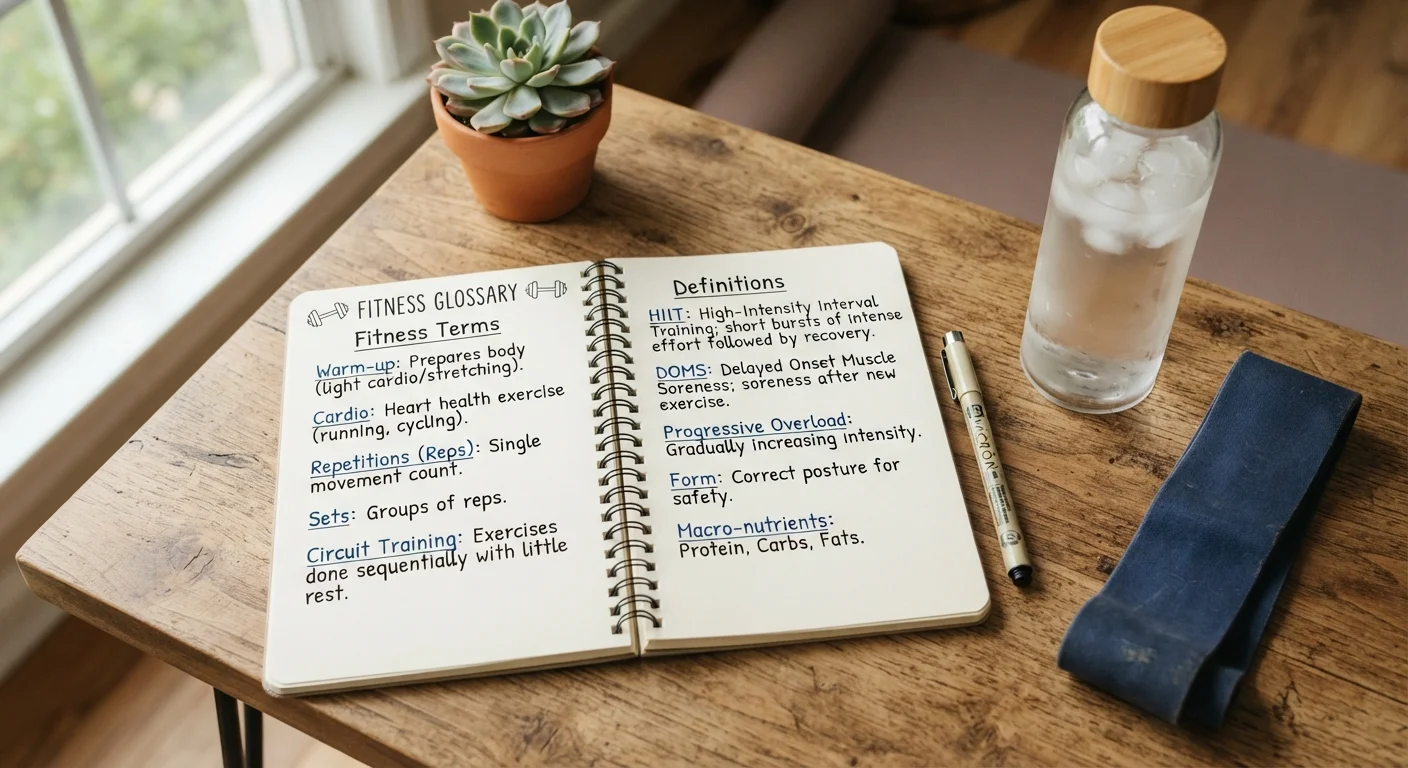 FITNESS GLOSSARY
Fitness Terms
Warm-up: Prepares body
(light cardio/stretching).
Cardio: Heart health exercise
(running, cycling).
Repetitions (Reps): Single
movement count.
Sets: Groups of reps.
Circuit Training: Exercises
done sequentially with little
rest.
Definitions
HIIT: High-Intensity Interval
Training; short bursts of intense
effort followed by recovery.
DOMS: Delayed Onset Muscle
Soreness; soreness after new
exercise.
Progressive Overload:
Gradually increasing intensity.
Form: Correct posture for
safety.
Macro-nutrients:
Protein, Carbs, Fats.